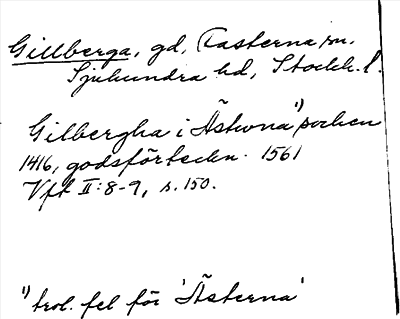 Gillberga, gd, Kasterna sn.
Sjuhundra hd, Stockh. l.
Gilbergha i Ästwna ¹) socken
1416, godsförteckn. 1561
Vft II:8-9, s. 150.
¹) trol. fel för 'Ästerna'